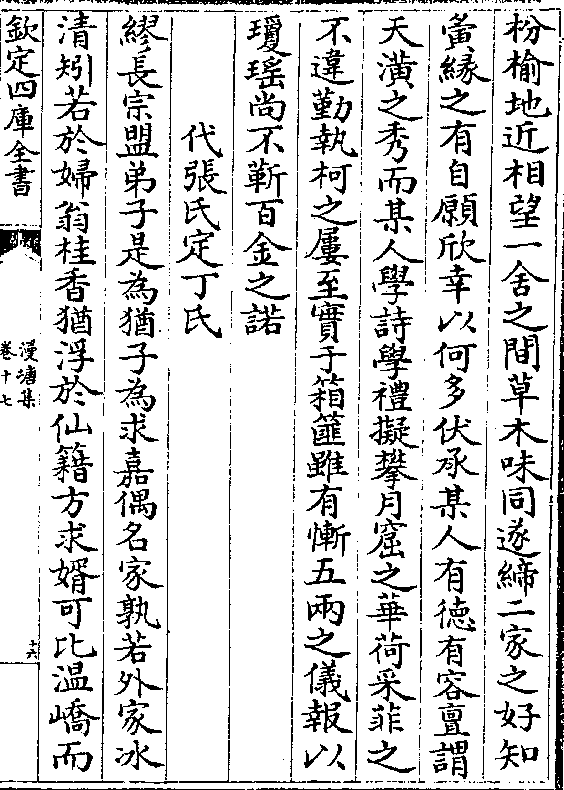 枌榆地近相望一舍之間草木味同遂締二家之好知
夤縁之有自願欣幸以何多伏承某人有徳有容亶謂
天潢之秀而某人學詩學禮擬攀月窟之華荷采菲之
不違勤執柯之屢至實于箱篚雖有慚五兩之儀報以
瓊瑤尚不靳百金之諾
代張氏定丁氏
繆長宗盟弟子是為猶子為求嘉偶名家孰若外家冰
清矧若於婦翁桂香猶浮於仙籍方求婿可比温嶠而
欽定四庫全書
漫塘集
卷十七
十六